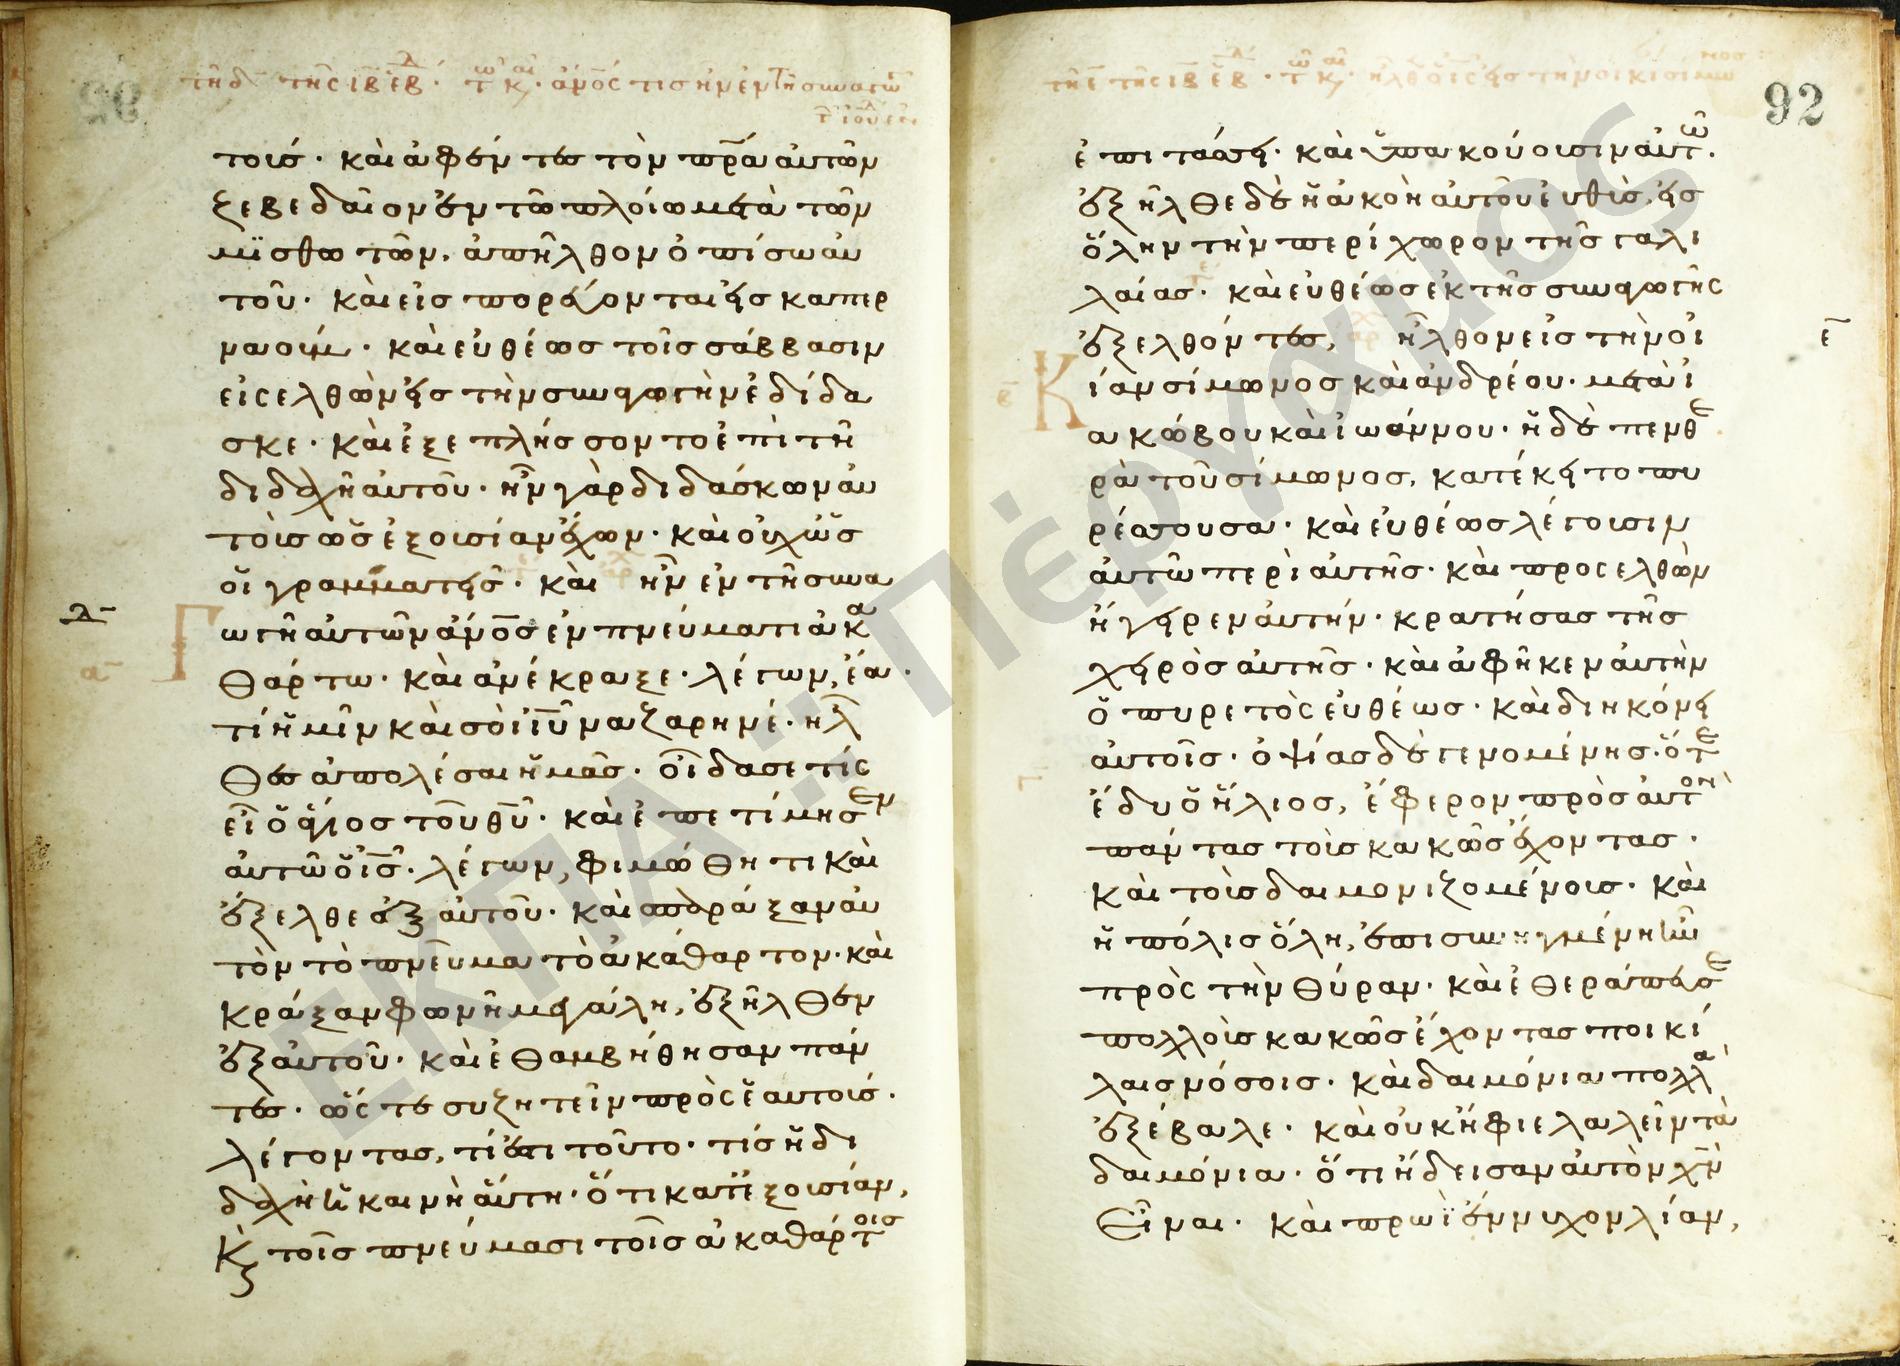 τῆ δ τῆς ιβ ἑβδ · τῶ καιρῶ · ἄνος τις ἦν ἐν τῆ συναγω
τοις · καὶ ἀφέντες τὸν πρα αὐτῶν
ζεβεδαῖον ἐν τῶ πλοίω μετὰ τῶν
μϊσθωτῶν, ἀπῆλθον ὀπίσω αὐ
τοῦ · καὶ εἰσπορεύονται εἰς καπερ
ναούμ · καὶ εὐθέως τοῖς σάββασιν
εἰσελθὼν εἰς τὴν συναγωγὴν ἐδίδα
σκε · καὶ ἐξεπλήσσοντο ἐπὶ τῆ
διδαχῆ αὐτοῦ · ἦν γὰρ διδάσκων αὐ
τοὺς ὡς ἐξουσίαν ἔχων · καὶ οὐχ ὡς
οἱ γραμματεῖς · καὶ ἦν ἐν τῆ συνα
γωγῆ αὐτῶν ἄνος ἐν πνεύματι ἀκα
θάρτω · καὶ ἀνέκραξε · λέγων, ἔα ·
τί ἡμῖν καὶ σοὶ ιῦ ναζαρηνέ · ἦλ
θες ἀπολέσαι ἡμᾶς · οἶδα σε τίς
εἶ ὁ ἅγιος τοῦ θῦ · καὶ ἐπετίμησεν
αὐτῶ ὁ ις · λέγων, φιμώθητι καὶ
ἔξελθε ἐξ αὐτοῦ · καὶ σπαράξαν αὐ
τὸν τὸ πνεῦμα τὸ ἀκάθαρτον · καὶ
κράξαν φωνῆ μεγάλη, ἐξῆλθεν
ἐξ αὐτοῦ · καὶ ἐθαμβήθησαν πάν
τες · ὥστε συζητεῖν πρὸς ἑαυτούς ·
λέγοντας, τί ἐστι τοῦτο · τίς ἡ δι
δαχὴ ἡ καινὴ αὕτη · ὅτι κατ ἐξουσίαν,
κ τοῖς πνεύμασι τοῖς ἀκαθάρτοις
τῆ ε τῆς ιβ ἑβδ · τῶ καιρῶ · ἦλθεν ὁ ις εἰς τὴν οἰκίαν σίμωνος
92
ἐπιτάσσει · καὶ ὑπακούουσιν αὐτῶ ·
ἐξῆλθε δὲ ἡ ἀκοὴ αὐτοῦ εὐθὺς, εἰς
ὅλην τὴν περίχωρον τῆς γαλι
λαίας · καὶ εὐθέως ἐκ τῆς συναγωγῆς
ἐξελθόντες, ἦλθον εἰς τὴν οἰ
κίαν σίμωνος καὶ ἀνδρέου · μετὰ ἰ
ακώβου καὶ ἰωάννου · ἡ δὲ πενθε
ρὰ τοῦ σίμωνος, κατέκειτο πυ
ρέσσουσα · καὶ εὐθέως λέγουσιν
αὐτῶ περὶ αὐτῆς · καὶ προσελθὼν
ἤγειρεν αὐτήν · κρατήσας τῆς
χειρὸς αὐτῆς · καὶ ἀφῆκεν αὐτὴν
ὁ πυρετὸς εὐθέως · καὶ διηκόνει
αὐτοῖς · ὀψίας δὲ γενομένης · ὅτε
ἔδυ ὁ ἥλιος, ἔφερον πρὸς αὐτὸν
πάντας τοὺς κακῶς ἔχοντας ·
καὶ τοὺς δαιμονιζομένους · καὶ
ἡ πόλις ὅλη, ἐπισυνηγμένη ἦν
πρὸς τὴν θύραν · καὶ ἐθεράπευσε
πολλοὺς κακῶς ἔχοντας ποικί
λαις νόσοις · καὶ δαιμόνια πολλὰ
ἐξέβαλε · καὶ οὐκ ἤφιε λαλεῖν τὰ
δαιμόνια · ὅτι ἤδεισαν αὐτὸν χν
εἶναι · καὶ πρωῒ ἔννυχον λίαν,
ΕΚΠΑ :: Πέργαμος